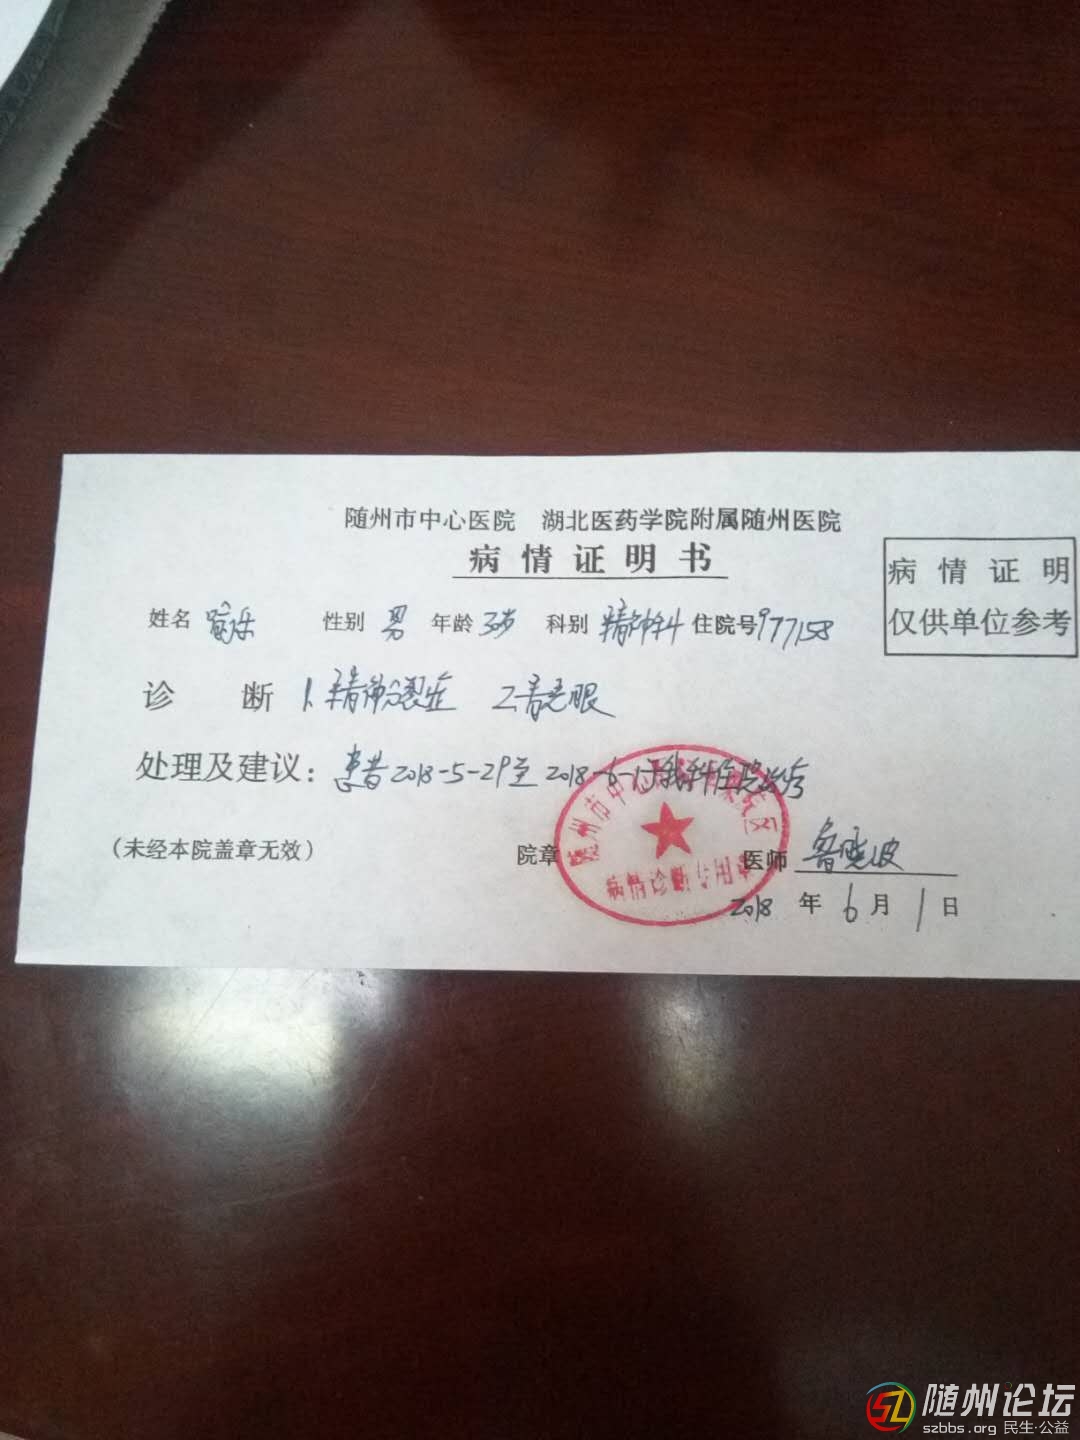 随州市中心医院 湖北医药学院附属随州医院
病情证明书
病情证明
仅供单位参考
姓名 性别 男 年龄 科别 精神科 住院号 977158
诊断 1.精神分裂症 2.青光眼
处理及建议：患者2018-5-29至2018-6-1于我科住院治疗
(未经本院盖章无效) 院章 医师 鲁晓波
随州市中心医院
病情诊断专用章
2018 年 6 月 1 日
随州论坛
szbbs.org 民生·公益